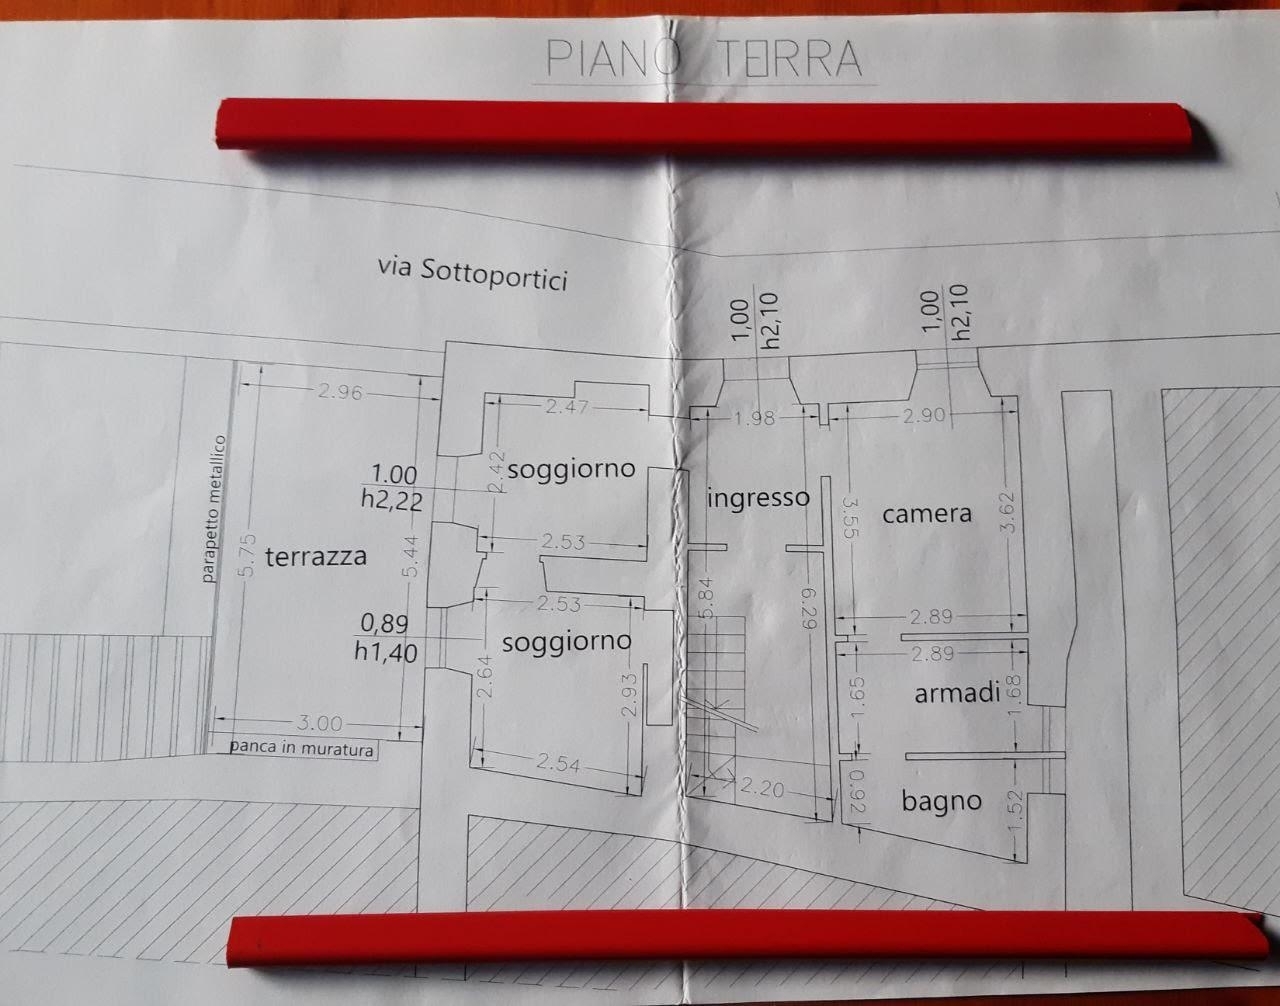 PIANO TERRA
via Sottoportici
1,00
h2,10
1,00
h2,10
2.96
2.47
1.98
2.90
parapetto metallico
5.75
terrazza
5.44
1.00
h2,22
2.42
soggiorno
2.53
ingresso
3.55
camera
3.62
0,89
h1,40
2.53
soggiorno
2.64
2.93
5.84
6.29
2.89
2.89
armadi
1.68
1.65
3.00
panca in muratura
2.54
2.20
0.92
bagno
1.52